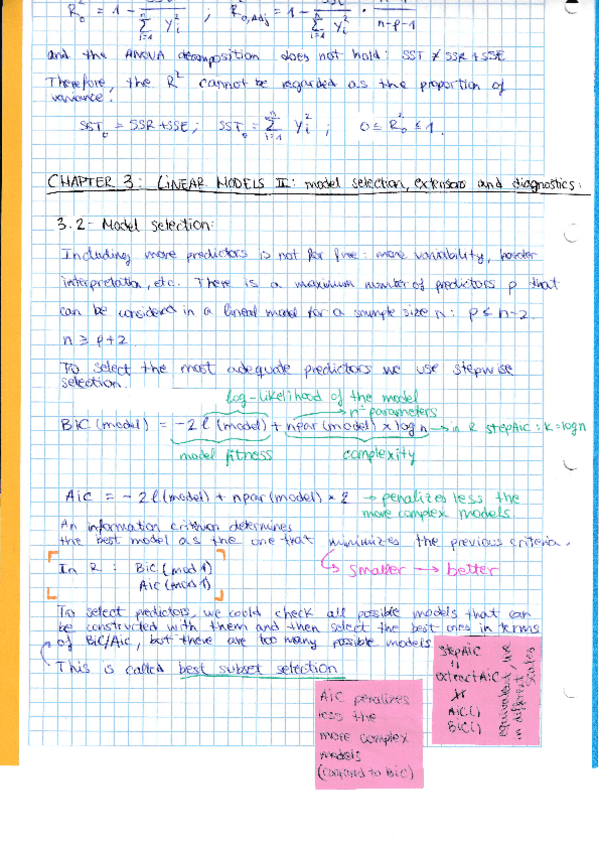 R₀² = 1 - SSE / Σⁿᵢ₌₁ Yᵢ² ; R²₀,Adj = 1 - SSE / Σⁿᵢ₌₁ Yᵢ² · n / n-p-1
and the ANOVA decomposition does not hold: SST ≠ SSR + SSE
Therefore, the R² cannot be regarded as the proportion of
variance.
SST₀ = SSR + SSE ; SST₀ = Σⁿᵢ₌₁ Yᵢ² ; 0 ≤ R₀² ≤ 1.
CHAPTER 3: LINEAR MODELS II: model selection, extensions and diagnostics:
3.2- Model selection:
Including more predictors is not for free: more variability, harder
interpretation, etc. There is a maximum number of predictors p that
can be considered in a lineal model for a sample size n: p ≤ n-2.
n ≥ p+2.
To select the most adequate predictors we use stepwise
selection.
log-likelihood of the model
→ nº parameters
BIC (model) = -2 l (model) + npar (model) × log n → in R stepAIC: k = log n
model fitness complexity
AIC = -2 l (model) + npar (model) × 2 → penalizes less the
more complex models
An information criterion determines
the best model as the one that minimizes the previous criteria.
In R: BIC (mod 1)
AIC (mod 1)
↳ smaller → better
To select predictors, we could check all possible models that can
be constructed with them and then select the best ones in terms
of BIC/AIC, but there are too many possible models
This is called best subset selection
stepAIC
extractAIC
AIC()
BIC()
equivalent, live
in different
scales
AIC penalizes
less the
more complex
models
(compared to BIC)